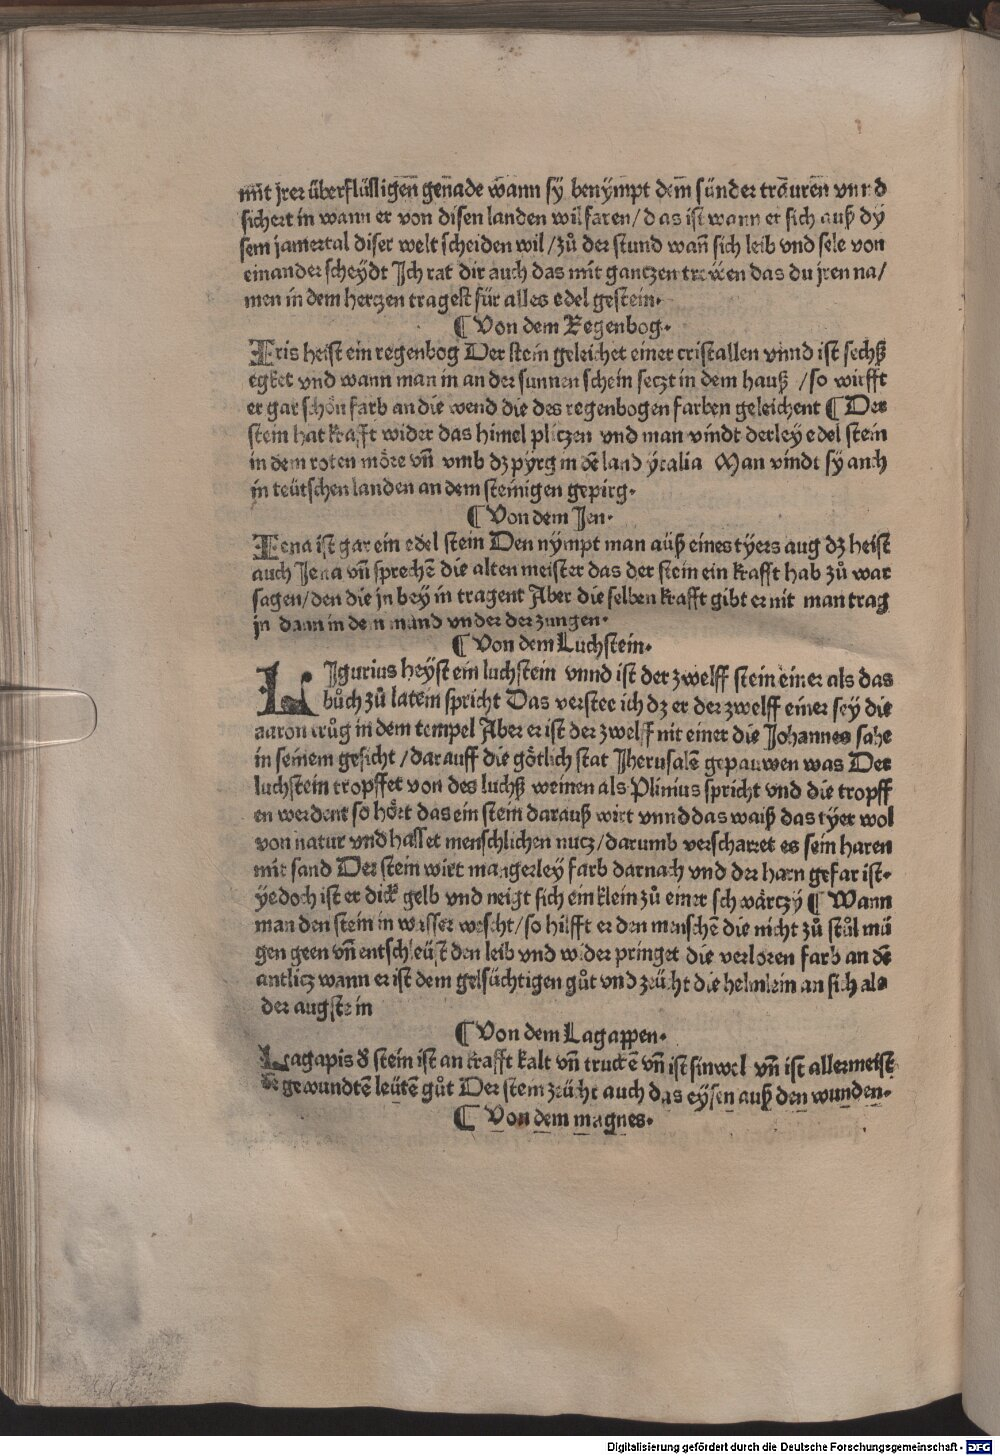 mit jrer überflüssigen genade wann sy benympt dem sünder trauren vnnd
sichert in wann er von disen landen wil faren/das ist wann er sich auß dy
sem jamertal diser welt scheiden wil/zů der stund wañ sich leib vnd sele von
einander scheydt Ich rat dir auch das mit gantzen trewen das du jren na/
men in dem hertzen tragest für alles edel gestein.
¶ Von dem Regenbog.
Iris heist ein regenbog Der stein geleichet einer cristallen vnnd ist sechß
egket vnd wann man in an der sunnen schein seczt in dem hauß /so wirfft
er gar schön farb an die wend die des regenbogen farben geleichent ¶ Der
stein hat krafft wider das himel pliczen vnd man vindt derley edel stein
in dem roten möre vñ vmb dz pyrg in dē land ytalia Man vindt sy auch
in teütschen landen an dem steinigen gepirg.
¶ Von dem Jen.
Jena ist gar ein edel stein Den nympt man auß eines tyers aug dz heist
auch Jena vñ sprechē die alten meister das der stein ein krafft hab zů war
sagen/den die jn bey in tragent Aber die selben krafft gibt er nit man trag
jn dann in dem mund vnder der zungen.
¶ Von dem Luchstein.
LIgurius heyst ein luchstein vnnd ist der zwelff stein einer als das
bůch zů latein spricht Das verstee ich dz er der zwelff einer sey die
aaron trůg in dem tempel Aber er ist der zwelff nit einer die Johannes sahe
in seinem gesicht/darauff die götlich stat Jherusalē gepauwen was Der
luchstein tropffet von des luchß weinen als Plinius spricht vnd die tropff
en werdent so hört das ein stein darauß wirt vnnd das waiß das tyer wol
von natur vnd hasset menschlichen nucz/darumb verscharret es sein haren
mit sand Der stein wirt mangerley farb darnach vnd der harn gefar ist.
yedoch ist er dick gelb vnd neigt sich ein klein zů einer schwärczy ¶ Wann
man den stein in wasser wescht/so hilfft er den menschē die nicht zů stůl mü
gen geen vñ entschleüst den leib vnd wider pringet die verloren farb an dē
antlicz wann er ist dem gelsüchtigen gůt vnd zeücht die helmlein an sich als
der augstein
¶ Von dem Lagappen.
Lagapis d' stein ist an krafft kalt vñ truckē vñ ist sinwel vñ ist allermeist
de gewundtē leütē gůt Der stein zeücht auch das eysen auß den wunden.
¶ Von dem magnes.
Digitalisierung gefördert durch die Deutsche Forschungsgemeinschaft - DFG